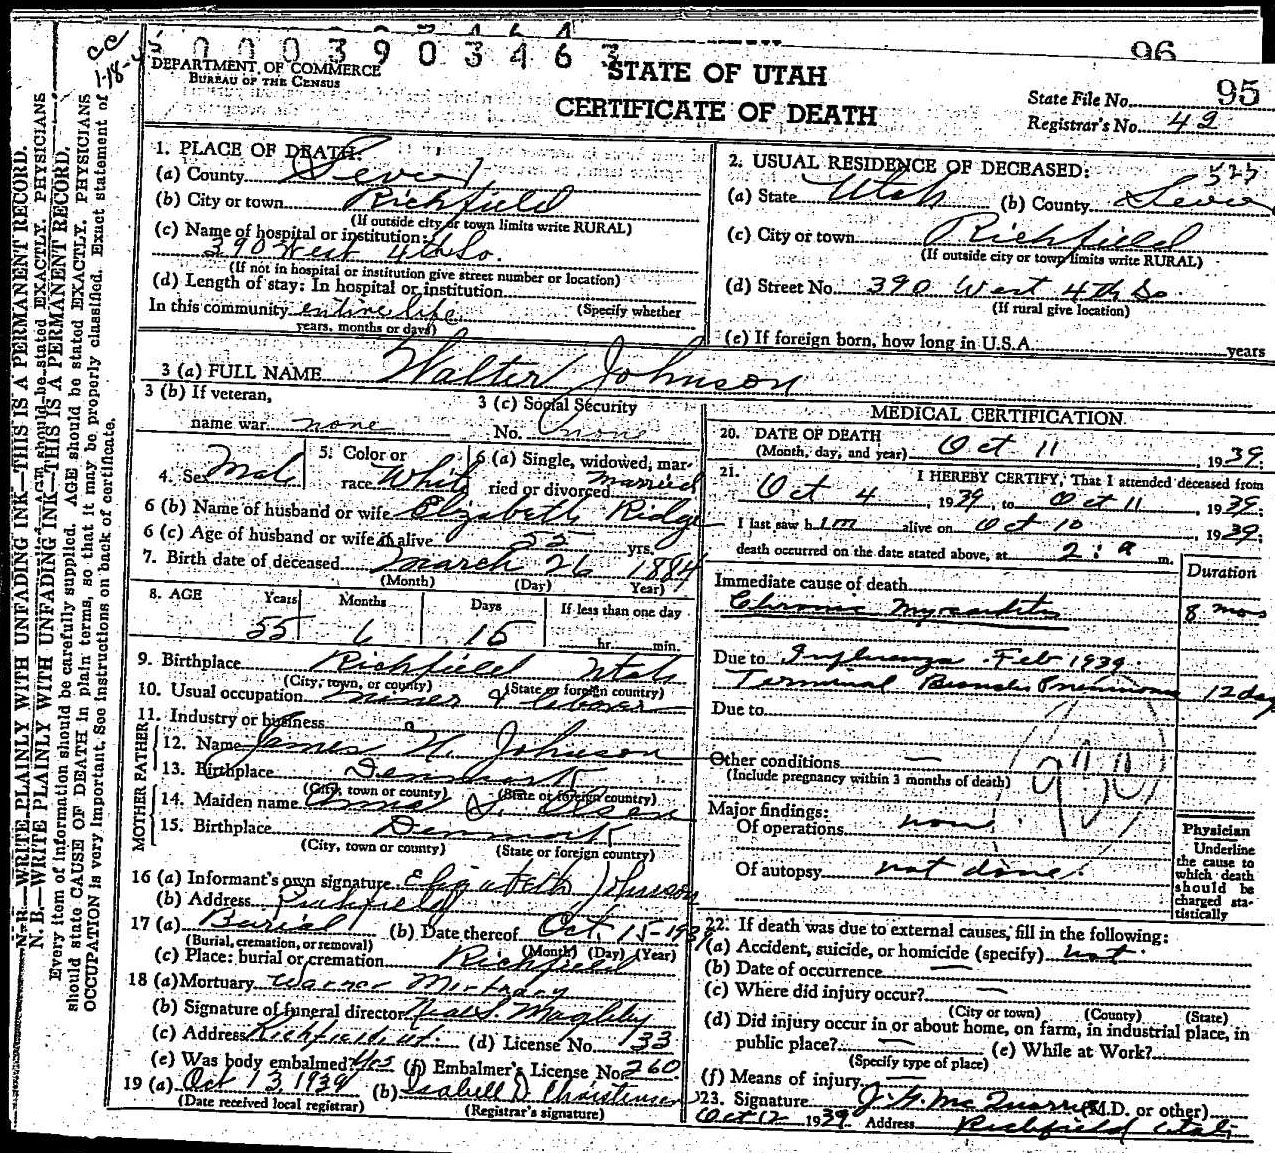 96
cc
1-18-4
0 0 0 3 9 0 3 4 6 3
DEPARTMENT OF COMMERCE
BUREAU OF THE CENSUS
STATE OF UTAH
CERTIFICATE OF DEATH
State File No. 95
Registrar's No. 42
1. PLACE OF DEATH:
(a) County Sevier
(b) City or town Richfield
(If outside city or town limits write RURAL)
(c) Name of hospital or institution:
390 West 4th So.
(If not in hospital or institution give street number or location)
(d) Length of stay: In hospital or institution
In this community entire life (Specify whether
years, months or days)
2. USUAL RESIDENCE OF DECEASED:
(a) State Utah (b) County Sevier
(c) City or town Richfield
(If outside city or town limits write RURAL)
(d) Street No. 390 West 4th So.
(If rural give location)
(e) If foreign born, how long in U.S.A. years
3 (a) FULL NAME Walter Johnson
3 (b) If veteran,
name war none
3 (c) Social Security
No. none
4. Sex Male
5. Color or
race White
6 (a) Single, widowed, mar-
ried or divorced Married
6 (b) Name of husband or wife Elizabeth Ridge
6 (c) Age of husband or wife if alive 55 yrs.
7. Birth date of deceased March 26 1884
(Month) (Day) Year)
8. AGE Years Months Days If less than one day
55 6 15 hr. min.
9. Birthplace Richfield Utah
(City, town, or county) (State or foreign country)
10. Usual occupation miner & laborer
11. Industry or business
FATHER
12. Name James H. Johnson
13. Birthplace Denmark
(City, town or county) (State or foreign country)
MOTHER
14. Maiden name Anna S. Olsen
15. Birthplace Denmark
(City, town or county) (State or foreign country)
16 (a) Informant's own signature Elizabeth Johnson
(b) Address Richfield
17 (a) Burial (b) Date thereof Oct. 15-1939
(Burial, cremation, or removal) (Month) (Day) (Year)
(c) Place: burial or cremation Richfield
18 (a) Mortuary Warner Mortuary
(b) Signature of funeral director Neal S. Magleby
(c) Address Richfield, Ut. (d) License No. 133
(e) Was body embalmed? Yes (f) Embalmer's License No. 260
19 (a) Oct 13 1939 (b) Isabell D Christensen
(Date received local registrar) (Registrar's signature)
MEDICAL CERTIFICATION
20. DATE OF DEATH
(Month, day, and year) Oct 11, 1939;
21. I HEREBY CERTIFY, That I attended deceased from
Oct 4, 1939, to Oct 11, 1939;
I last saw him alive on Oct 10, 1939;
death occurred on the date stated above, at 2:a m.
Duration
Immediate cause of death
Chronic Myocarditis 8 mos
Due to Influenza Feb 1939.
Terminal Broncho Pneumonia 12 days
Due to
Other conditions —
(Include pregnancy within 3 months of death)
Major findings:
Of operations none
Of autopsy not done.
Physician
Underline
the cause to
which death
should be
charged sta-
tistically
22. If death was due to external causes, fill in the following:
(a) Accident, suicide, or homicide (specify) not
(b) Date of occurrence —
(c) Where did injury occur? —
(City or town) (County) (State)
(d) Did injury occur in or about home, on farm, in industrial place, in
public place? — (e) While at Work?
(Specify type of place)
(f) Means of injury —
23. Signature J. G. McQuarrie (M.D. or other)
Oct 12 1939 Address Richfield Utah
N. B.—WRITE PLAINLY WITH UNFADING INK—THIS IS A PERMANENT RECORD.
N. B.—WRITE PLAINLY WITH UNFADING INK—THIS IS A PERMANENT RECORD.
Every item of information should be carefully supplied. AGE should be stated EXACTLY. PHYSICIANS
should state CAUSE OF DEATH in plain terms, so that it may be properly classified. Exact statement of
OCCUPATION is very important. See instructions on back of certificate.